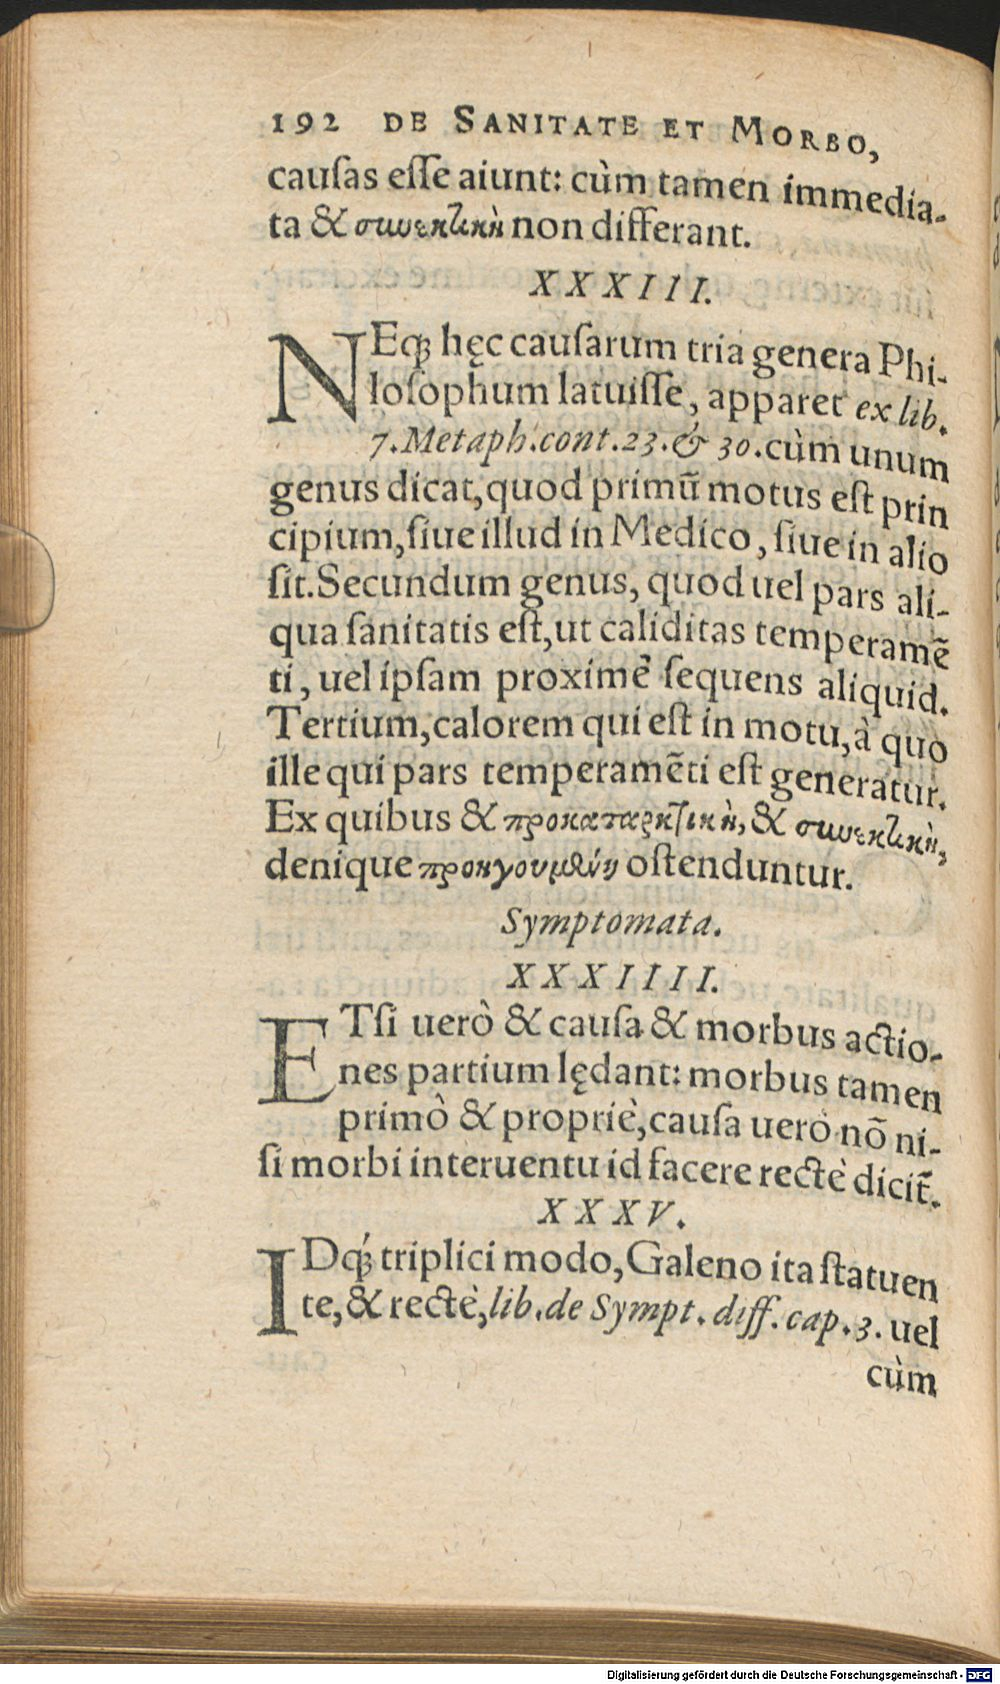 192 DE SANITATE ET MORBO,
cauſas eſſe aiunt: cùm tamen immedia-
ta & συνεκτικὴ non differant.
XXXIII.
NEq́; hęc cauſarum tria genera Phi-
loſophum latuiſſe, apparet ex lib.
7. Metaph. cont. 23. & 30. cùm unum
genus dicat, quod primũ motus eſt prin
cipium, ſiue illud in Medico, ſiue in alio
ſit. Secundum genus, quod uel pars ali-
qua ſanitatis eſt, ut caliditas temperamẽ
ti, uel ipſam proximè ſequens aliquid.
Tertium, calorem qui eſt in motu, à quo
ille qui pars temperamẽti eſt generatur.
Ex quibus & προκαταρκτικὴ, & συνεκτικὴ,
denique προηγουμένη oſtenduntur.
Symptomata.
XXXIIII.
ETſi uerò & cauſa & morbus actio-
nes partium lędant: morbus tamen
primò & propriè, cauſa uerò nõ ni-
ſi morbi interuentu id facere rectè dicit̃.
XXXV.
IDq́; triplici modo, Galeno ita ſtatuen
te, & rectè, lib. de Sympt. diff. cap. 3. uel
cùm
Digitalisierung gefördert durch die Deutsche Forschungsgemeinschaft - DFG